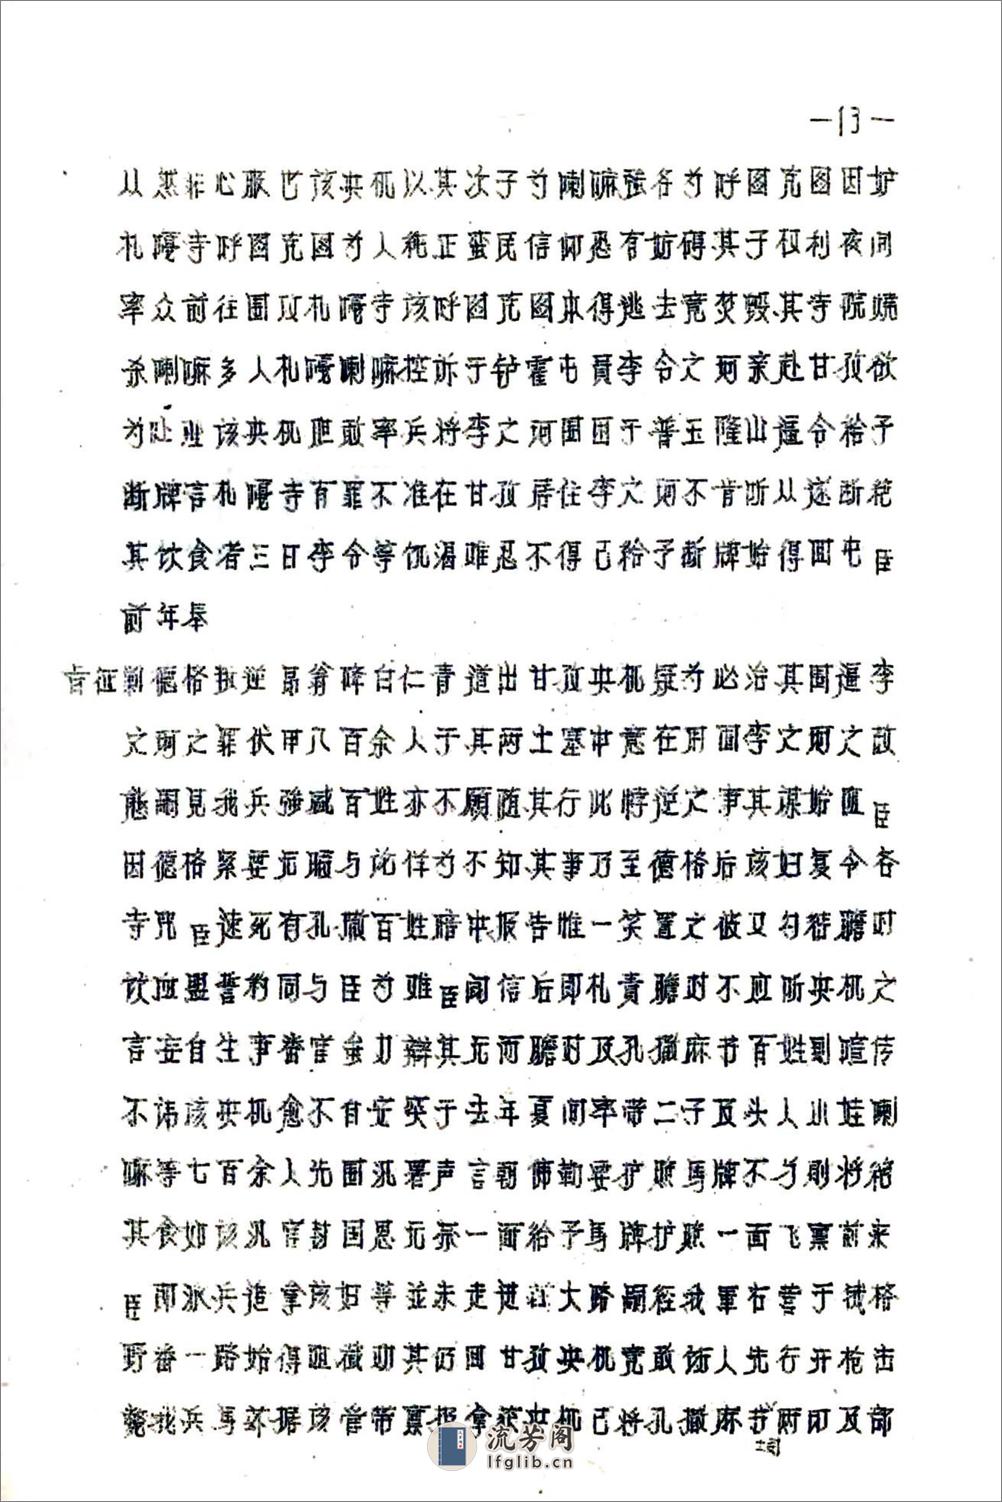 —13—
从然非心服也该央机以其次子为喇嘛强名为呼图克图因妒
札嘎寺呼图克图为人纯正蛮民信仰恐有妨碍其子权利夜间
率众前往围攻札嘎寺该呼图克图本得逃去竟焚毁其寺院烧
杀喇嘛多人札嘎喇嘛控诉于炉霍屯員李令之珂亲赴甘孜欲
为处理该央机胆敢率兵将李之珂围困于普玉隆山逼令给予
断牌言札嘎寺百罪不准在甘孜居住李之珂不肯听从遂断绝
其饮食者三日李令等饥渴难忍不得已给予断牌始得回屯臣
前年奉
旨征剿德格叛逆昂翁降白仁青道出甘孜央机疑为必治其围逼李
之珂之罪伏甲八百余人于其两土寨中意在用围李之珂之故
态嗣見我兵强盛百姓亦不顾随其行此悖逆之事其谋始阻臣
因德格紧要无暇与论佯为不知其事乃至德格后该妇复令各
寺咒臣速死有孔撒百姓暗中报告惟一笑置之彼又勾结瞻对
饮血盟誓约同与臣为难臣闻信后即札责瞻对不应听央机之
言妄自生事番官虽力辩其无而瞻对及孔撒麻书百姓则喧传
不讳该央机愈不自安突于去年夏间率带二子及头人小娃喇
嘛等七百余人先围汛署声言朝佛勒要护照马牌不为则将绝
其食如该汛官封国恩无奈一面给予马牌护照一面飞禀前来
臣即派兵追拿该妇等並未走进藏大路嗣经我軍右营于械格
野番一路始得阻截勒其仍回甘孜央机竟敢饬人先行开枪击
毙我兵马亦据该管带禀报拿获央机已将孔撒麻书两印及部
流芳阁
lfglib.cn